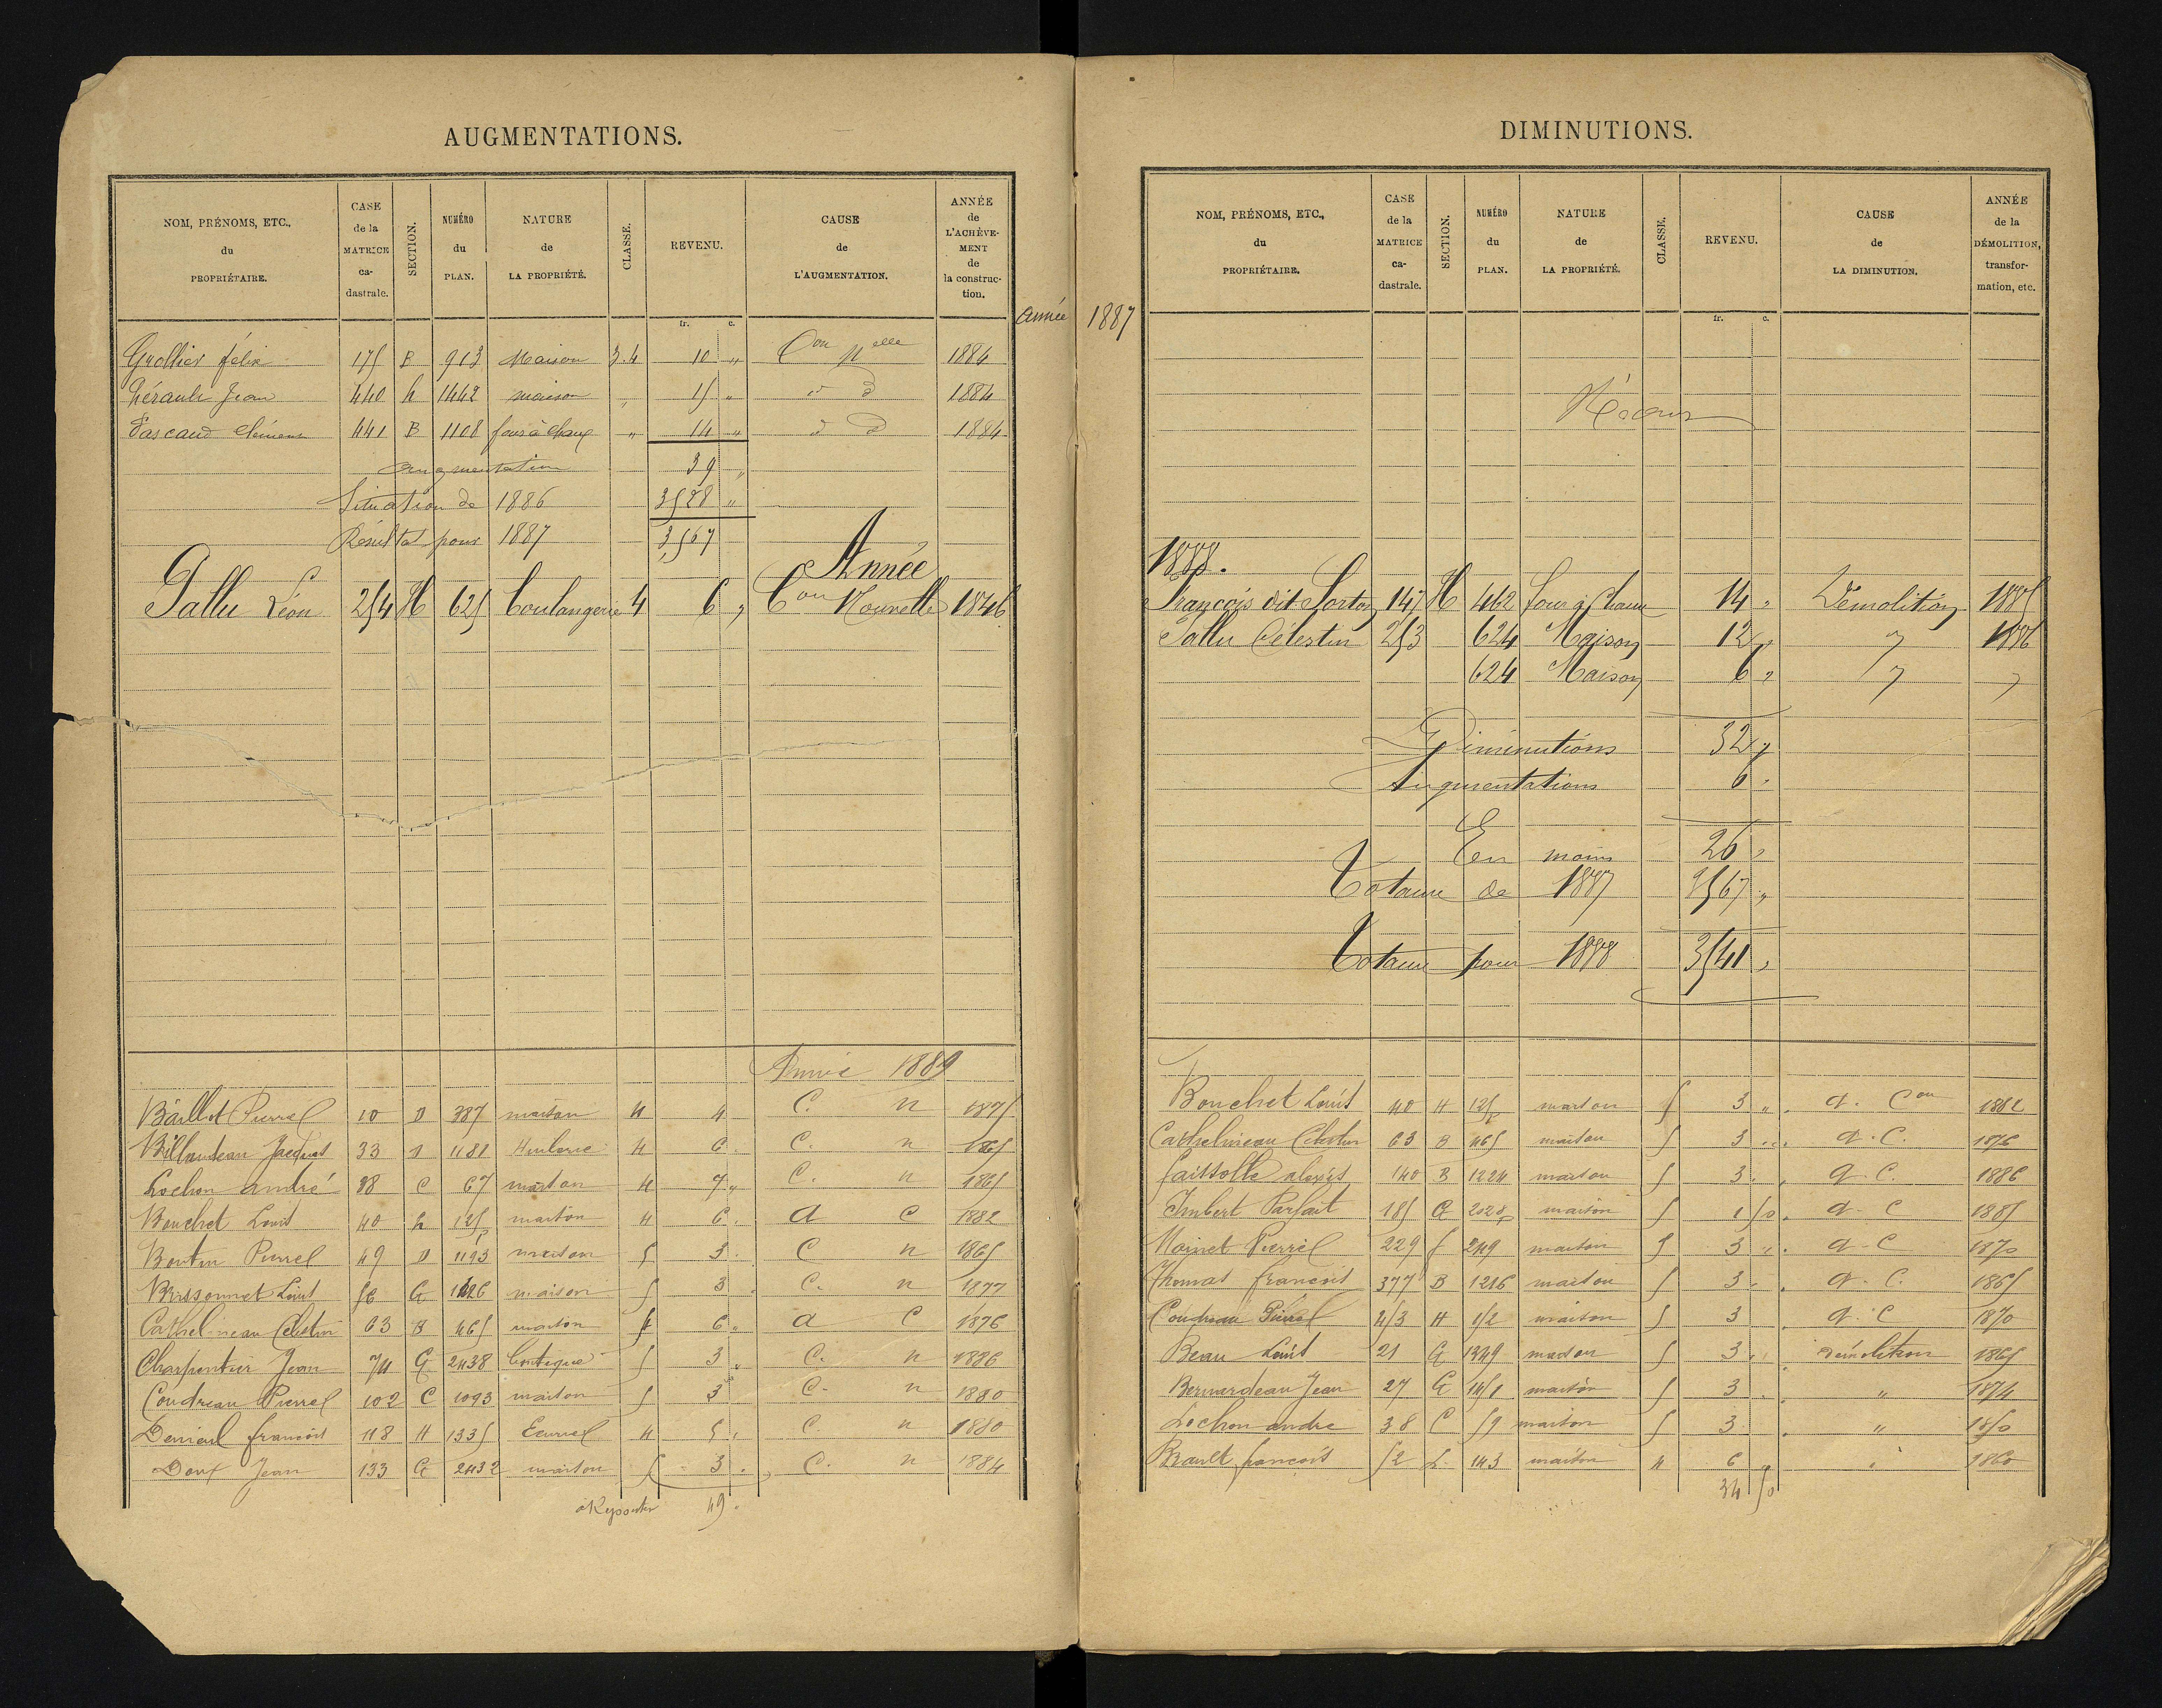 AUGMENTATIONS.
NOM, PRÉNOMS, ETC., du PROPRIÉTAIRE. CASE de la MATRICE ca-dastrale. SECTION. NUMÉRO du PLAN. NATURE de LA PROPRIÉTÉ. CLASSE. REVENU. CAUSE de L'AUGMENTATION. ANNÉE de L'ACHÈVE-MENT de la construc-tion.
fr. c.
Année 1887
Grollier félix 175 B 913 Maison 3.4 10 " Con Nelle 1884
hérault Jean 440 h 1442 maison " 15 " " d 1884
Pascaud Clément 441 B 1108 four à chaux " 14 " d d 1884
augmentation 39 "
Situation de 1886 3528 "
Résultat pour 1887 3,567
Année
Pallu Léon 254 H 625 boulangerie 4 6 " Con Nouvelle 1846
Année 1889
Baillot Pierre 10 D 387 maison 4 4 C. n 1875
Billaudeau Jacques 33 D 1181 Huilerie 4 6 C. n 1865
Lochon andré 38 C 67 maison 4 7 " C. n 1865
Bouchet Louis 40 h 125p maison 4 6 a C 1882
Boutin Pierre 49 D 1193 maison 5 3 C n 1865
Brissonnet Louis 56 G 1426 maison 5 3 C. n 1877
Cathelineau Célestin 63 B 465 maison 4 6 " a C 1876
Charpentier Jean 74 G 2438 boutique 5 3 " C. n 1886
Coudreau Pierre 102 C 1093 maison 5 3 C. n 1880
Denieul françois 118 H 1335 Ecurie 4 5 " C. n 1880
Doux Jean 133 G 2432 maison 5 3 . C. n 1884
a Reporter 49 "
DIMINUTIONS.
NOM, PRÉNOMS, ETC., du PROPRIÉTAIRE. CASE de la MATRICE ca-dastrale. SECTION. NUMÉRO du PLAN. NATURE de LA PROPRIÉTÉ. CLASSE. REVENU. CAUSE de LA DIMINUTION. ANNÉE de la DÉMOLITION, transfor-mation, etc.
fr. c.
Néant
1888.
François dit 147 H 462 four à Chaux 14 " Démolition 1885
Pallu Célestin 253 624 Maison 12 " " 1886
624 Maison 6 " " "
Diminutions 32 "
Augmentations 6 "
En moins 26 "
Totaux de 1887 3567 "
Totaux pour 1888 3541 "
Bouchet Louis 40 H 125p maison 5 3 " a. Con 1882
Cathelineau Célestin 63 B 465 maison 5 3 " a. C. 1876
faissolle alexis 140 B 1224 maison 5 3 " a. C. 1886
Imbert Parfait 185 G 2020p maison 5 1 50 a. C 1885
Moinet Pierre 229 f 249 maison 5 3 " a. C 1870
Thomas françois 377 B 1216 maison 5 3 " a. C. 1865
Coudreau Pierre 413 H 152 maison 5 3 a. C 1870
Beau Louis 21 G 1349 maison 5 3 " Démolition 1865
Bernardeau Jean 27 G 1451 maison 5 3 " " 1874
Lochon andré 38 C 59 maison 5 3 " 1850
Brault françois 52 L 143 maison 4 6 " 1860
34 50